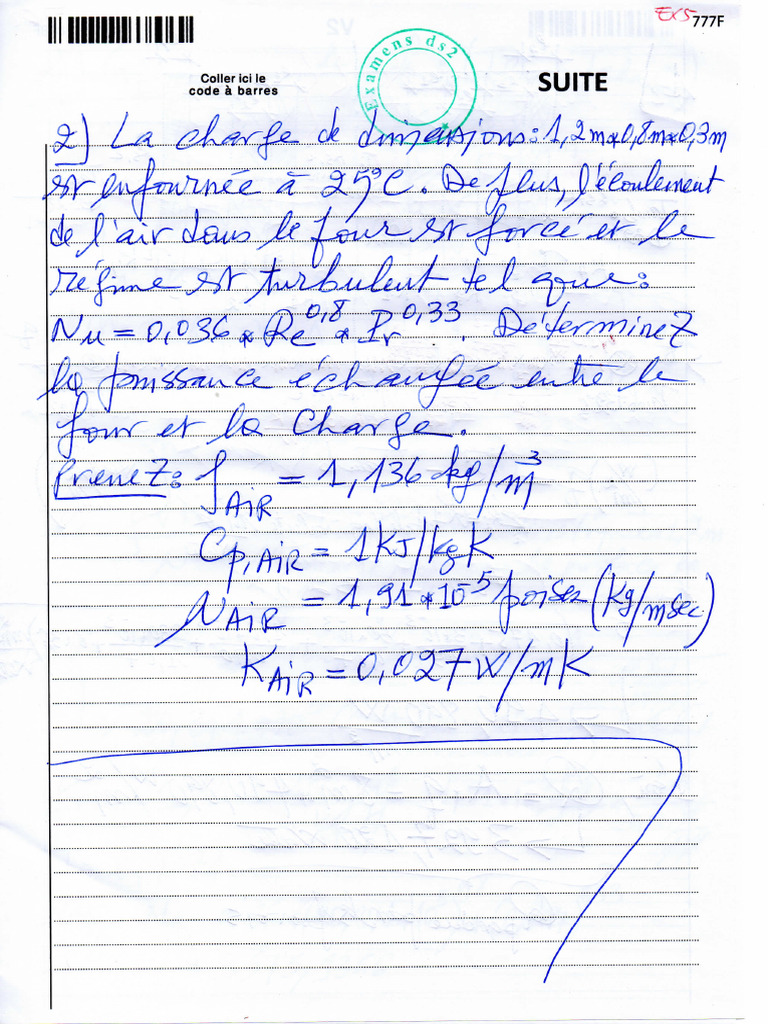 Ex5
777F
Coller ici le
code à barres
Examens ds2
SUITE
2) La charge de dimensions: 1,2m*0,8m*0,3m
est enfournée à 25°C. De plus, l'écoulement
de l'air dans le four est forcé et le
régime est turbulent tel que:
Nu = 0,036 * Re^0,8 * Pr^0,33. Déterminez
la puissance échangée entre le
four et la charge.
Prenez: ρAIR = 1,136 kg/m³
Cp,AIR = 1KJ/kgK
μAIR = 1,91*10^-5 poises (kg/msec)
KAIR = 0,027W/mK